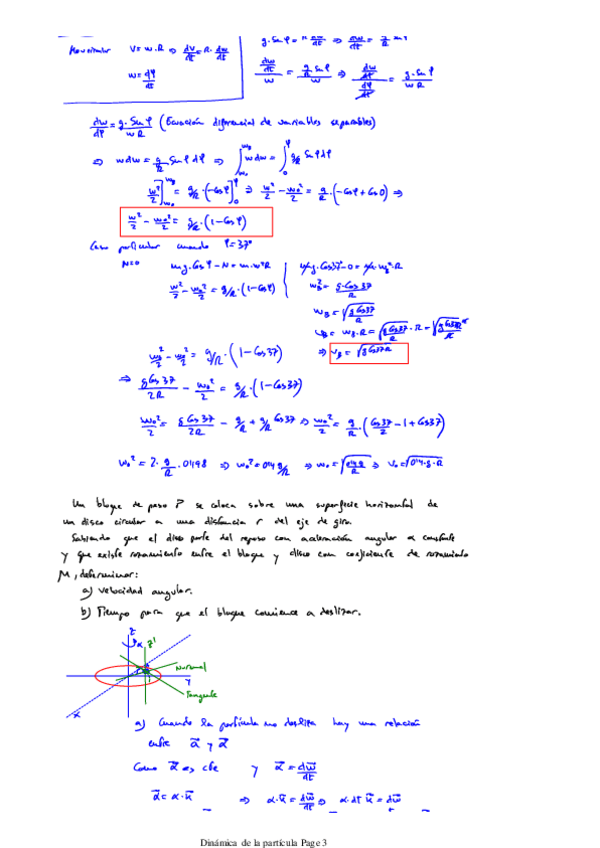 Movimiento V = w.R ⇒ dv/dt = R. dw/dt
w = dφ/dt
g. Sen φ = R dw/dt ⇒ dw/dt = g/R Sen φ
dw/dt / w = g/R Sen φ / w ⇒ dw/dt / dφ/dt = g. Sen φ / w R
dw/dφ = g. Sen φ / w R (Ecuación diferencial de variables separables)
⇒ w dw = g/R Sen φ dφ ⇒ ∫ w dw = ∫ g/R Sen φ dφ
w²/2 ] = g/R . (-Cos φ) ] ⇒ w²/2 - w₀²/2 = g/R . (-Cos φ + Cos 0) ⇒
w²/2 - w₀²/2 = g/R . (1 - Cos φ)
Caso particular cuando φ = 37°
N=0 m.g. Cos φ - N = m. w² R m.g. Cos 37 - 0 = m. w².R
w²/2 - w₀²/2 = g/R . (1 - Cos φ) w_B² = g. Cos 37 / R
w_B = √(g Cos 37 / R)
v_B = w_B . R = √(g Cos 37 / R) . R = √(g Cos 37 R² / R)
⇒ v_B = √(g Cos 37 R)
w_B²/2 - w₀²/2 = g/R . (1 - Cos 37)
⇒ g Cos 37 / 2R - w₀²/2 = g/R . (1 - Cos 37)
w₀²/2 = g Cos 37 / 2R - g/R + g/R Cos 37 ⇒ w₀²/2 = g/R . (Cos 37 / 2 - 1 + Cos 37)
w₀² = 2. g/R . 0,198 ⇒ w₀² = 0,4 g/R ⇒ w₀ = √(0,4 g / R) ⇒ v₀ = √(0,4 . g . R)
Un bloque de peso P se coloca sobre una superficie horizontal de
un disco circular a una distancia r del eje de giro.
Sabiendo que el disco parte del reposo con aceleración angular α constante
y que existe rozamiento entre el bloque y disco con coeficiente de rozamiento
μ, determinar:
a) velocidad angular.
b) Tiempo para que el bloque comience a deslizar.
z
α z'
Normal
y
Tangente
x
a) Cuando la partícula no desliza hay una relación
entre a⃗ y α⃗
Como α⃗ es cte y α⃗ = dw⃗/dt
α⃗ = α.u⃗ ⇒ α.u⃗ = dw⃗/dt ⇒ α.dt u⃗ = dw⃗
Dinámica de la partícula Page 3